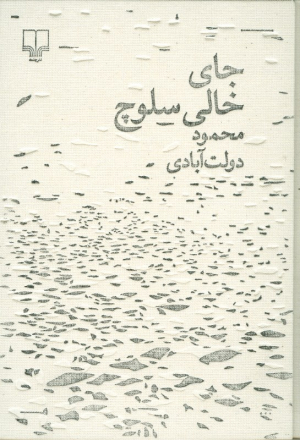 جای
خالی سلوچ
محمود
دولت‌آبادی
نشرچشمه